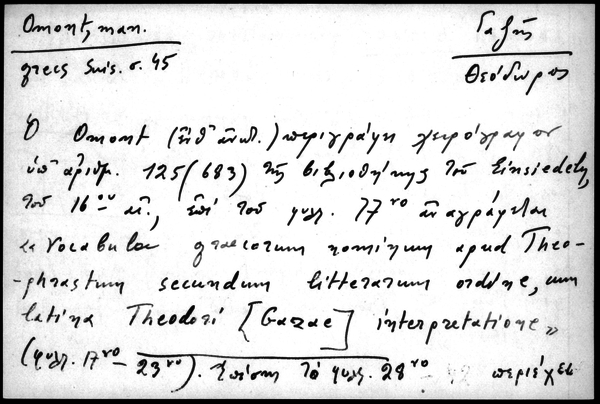 Omont, man.
Γαζῆς
grecs Suis. σ. 45
Θεόδωρος
Ὁ Omont (ἔνθ' ἀνωτ.) περιγράφει χειρόγραφον
ὑπ' ἀριθμ. 125 (683) τῆς βιβλιοθήκης τοῦ Einsiedeln,
τοῦ 16ου αἰ., ἐπὶ τοῦ φυλλ. 77ro ἀναγράφεται
« Vocabula graecorum nominum apud Theo-
-phrastum secundum litterarum ordine, cum
latina Theodori [Gazae] interpretatione »
(φυλλ. 17ro - 23ro). Ἐπίσης τὸ φυλλ. 28ro περιέχει